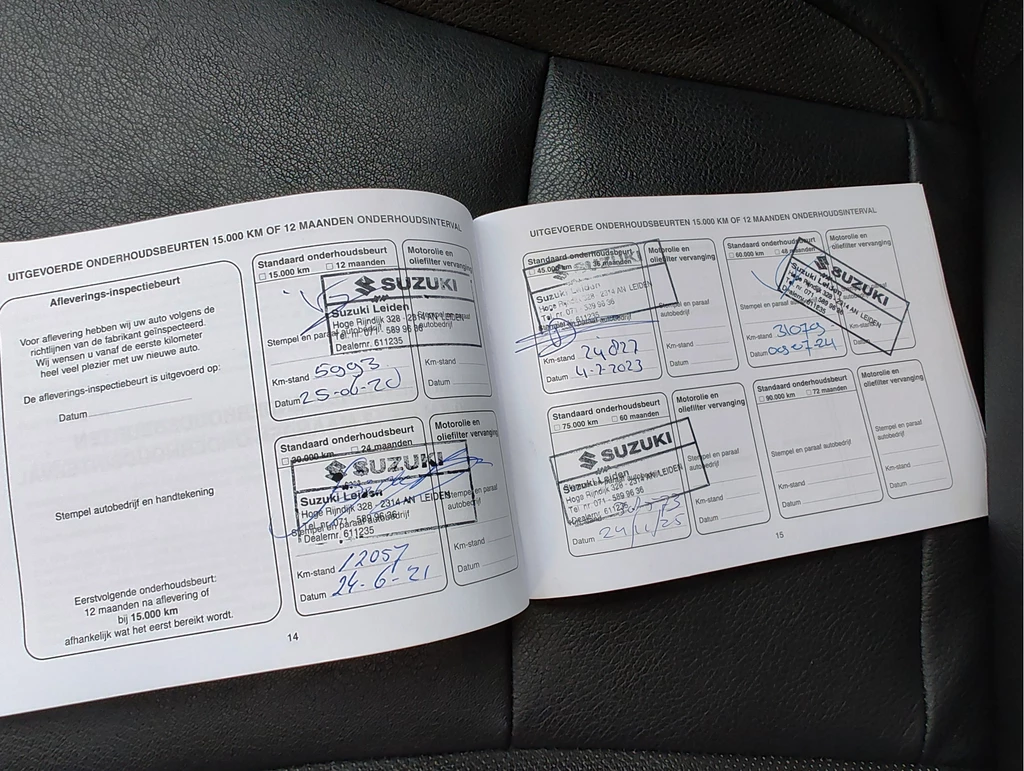 UITGEVOERDE ONDERHOUDSBEURTEN 15.000 KM OF 12 MAANDEN ONDERHOUDSINTERVAL
Afleverings-inspectiebeurt
Voor aflevering hebben wij uw auto volgens de
richtlijnen van de fabrikant geïnspecteerd.
Wij wensen u vanaf de eerste kilometer
heel veel plezier met uw nieuwe auto.
De afleverings-inspectiebeurt is uitgevoerd op:
Datum
Stempel autobedrijf en handtekening
Eerstvolgende onderhoudsbeurt:
12 maanden na aflevering of
bij 15.000 km
afhankelijk wat het eerst bereikt wordt.
Standaard onderhoudsbeurt
15.000 km 12 maanden
SUZUKI
Suzuki Leiden
Hoge Rijndijk 328 - 2314 AN LEIDEN
Stempel en paraaf autobedrijf
Tel. nr. 071 - 589 96 36
Dealernr. 611235
Km-stand 5993
Datum 25-06-20
Motorolie en
oliefilter vervanging
Km-stand
Datum
Standaard onderhoudsbeurt
30.000 km 24 maanden
SUZUKI
Suzuki Leiden
Hoge Rijndijk 328 - 2314 AN LEIDEN
Tel. nr. 071 - 589 96 36
Stempel en paraaf autobedrijf
Dealernr. 611235
Km-stand 12057
Datum 24-6-21
Motorolie en
oliefilter vervanging
Stempel en paraaf
autobedrijf
Km-stand
Datum
14
UITGEVOERDE ONDERHOUDSBEURTEN 15.000 KM OF 12 MAANDEN ONDERHOUDSINTERVAL
Standaard onderhoudsbeurt
45.000 km 36 maanden
SUZUKI
Suzuki Leiden
Hoge Rijndijk 328 - 2314 AN LEIDEN
Tel. nr. 071 - 589 96 36
Stempel en paraaf autobedrijf
Km-stand 24827
Datum 4-7-2023
Motorolie en
oliefilter vervanging
Stempel en paraaf
autobedrijf
Km-stand
Datum
Standaard onderhoudsbeurt
60.000 km 48 maanden
SUZUKI
Suzuki Leiden
Stempel en paraaf autobedrijf
Km-stand 31079
Datum 09-07-24
Motorolie en
oliefilter vervanging
Km-stand
Datum
Standaard onderhoudsbeurt
75.000 km 60 maanden
SUZUKI
Suzuki Leiden
Hoge Rijndijk 328 - 2314 AN LEIDEN
Tel. nr. 071 - 589 96 36
Dealernr. 611235
Datum 24/11/25
Motorolie en
oliefilter vervanging
Stempel en paraaf
autobedrijf
Km-stand
Datum
Standaard onderhoudsbeurt
90.000 km 72 maanden
Stempel en paraaf autobedrijf
Km-stand
Datum
Motorolie en
oliefilter vervanging
Stempel en paraaf
autobedrijf
Km-stand
Datum
15